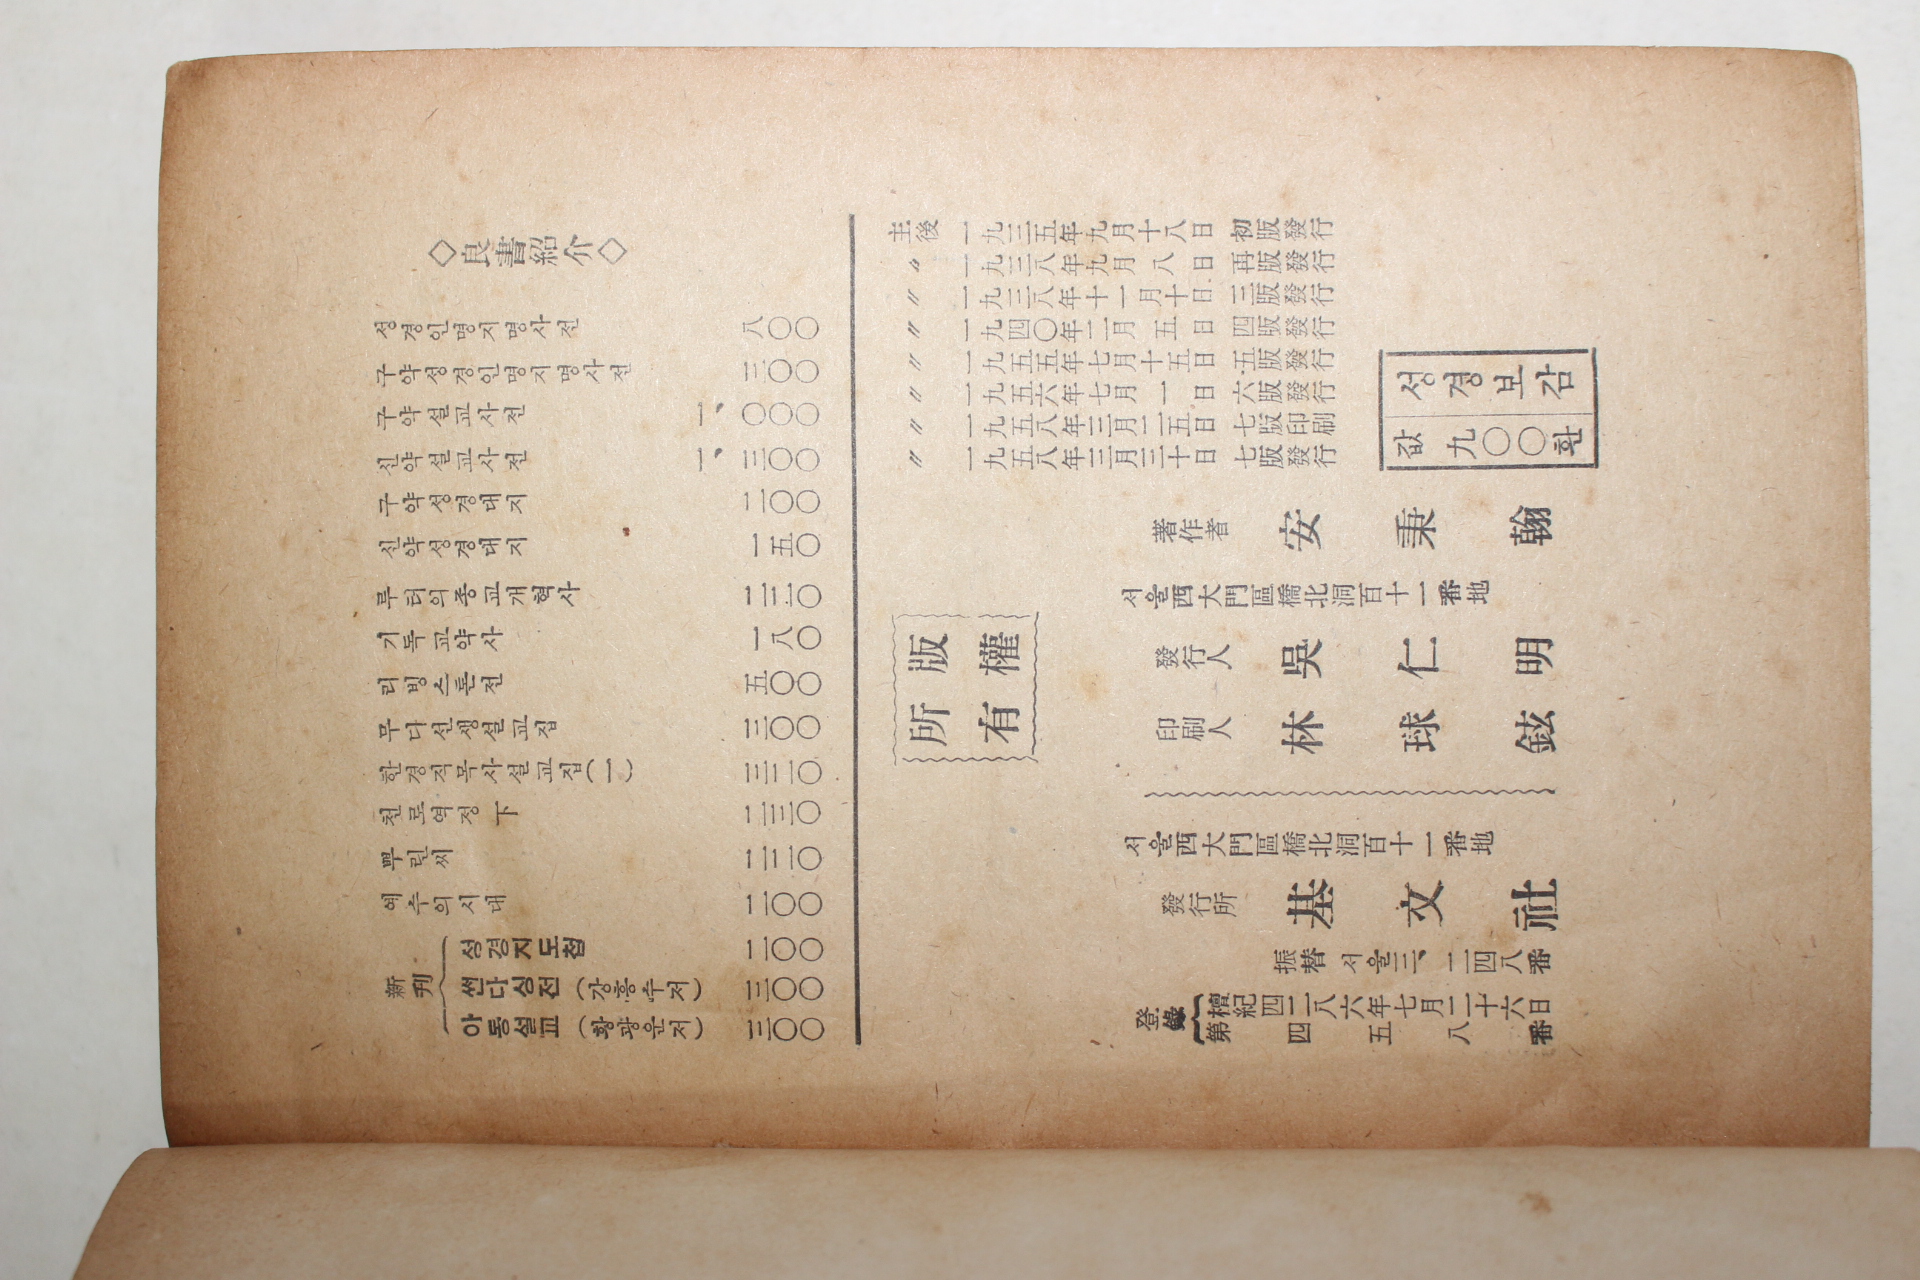 ◇良書紹介◇
성경인명지명사전 八〇〇
구약성경인명지명사전 三〇〇
구약설교사전 一、〇〇〇
신약설교사전 一、三〇〇
구약성경대지 二〇〇
신약성경대지 一五〇
루터의종교개혁사 二三〇
기독교약사 一八〇
리빙스톤전 五〇〇
무디선생설교집 三〇〇
한경직목사설교집(一) 三三〇
천로역정 下 二三〇
뿌린씨 二三〇
예수의시대 二〇〇
新刊
성경지도첩 二〇〇
썬다싱전 (강흥수저) 三〇〇
아동설교 (황광은저) 三〇〇
主後 一九三五年九月十八日 初版發行
〃 一九三八年九月八日 再版發行
〃 一九三八年十一月十日 三版發行
〃 一九四〇年二月五日 四版發行
〃 一九五五年七月十五日 五版發行
〃 一九五六年七月一日 六版發行
〃 一九五八年三月二五日 七版印刷
〃 一九五八年三月三十日 七版發行
성경보감
값 九〇〇환
版權
所有
著作者 安秉翰
서울西大門區橋北洞百十一番地
發行人 吳仁明
印刷人 林球鉉
서울西大門區橋北洞百十一番地
發行所 基文社
振替서울三、二四八番
登錄
檀紀四二八六年七月二十六日
第四五八番